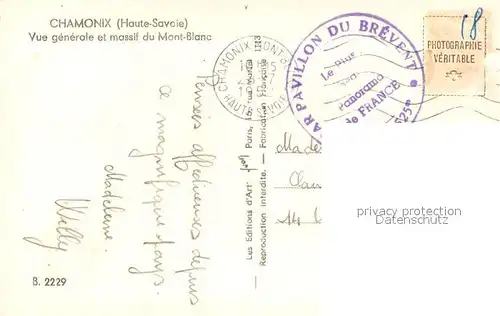 CHAMONIX (Haute-Savoie)
Vue générale et massif du Mont-Blanc
Pensées affectueuses depuis
ce magnifique pays.
Madeleine.
Willy
B. 2229
Les Editions d'Art
Paris, rue
Reproduction interdite. - Fabrication Française
CHAMONIX MONT-B
HAUTE SAVOIE
BAR PAVILLON DU BRÉVENT
2525m
Le plus
beau
Panorama
de FRANCE
18
PHOTOGRAPHIE
VÉRITABLE
Made
14
privacy protection
Datenschutz